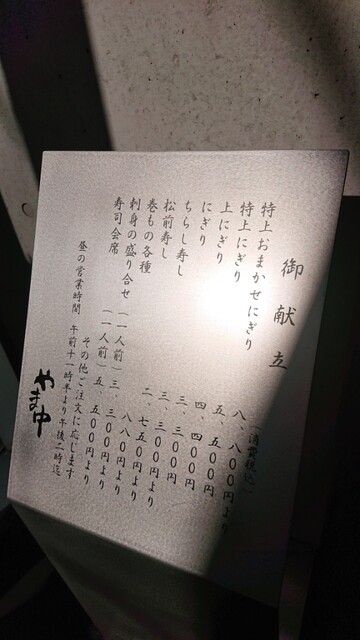 御献立
（消費税込）
特上おまかせにぎり 八、八〇〇円より
特上にぎり 五、五〇〇円
上にぎり 四、四〇〇円
にぎり 三、三〇〇円
ちらし寿し 三、三〇〇円
松前寿し 二、七五〇円より
巻もの各種 八八〇円より
刺身の盛り合せ（一人前）三、三〇〇円より
寿司会席（一人前）五、五〇〇円より
その他ご注文に応じます
昼の営業時間 午前十一時半より午後二時迄
やま中